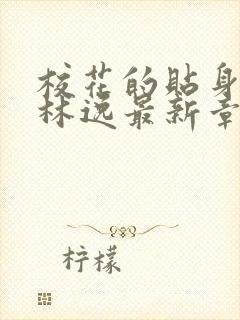 校花的贴身
林逸最新章
柠檬